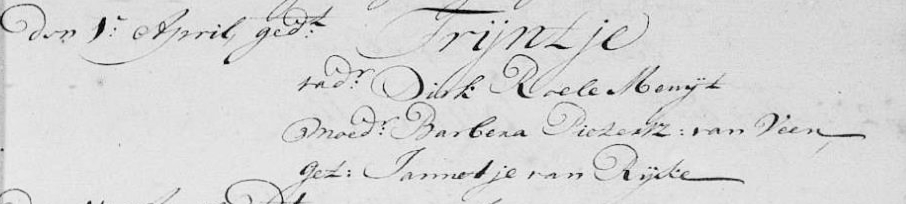 den 1.r April, ged.t Trijntje
vad.r Dirk Roele Menijt
moed.r Barbera Pieterz: van Veen,
get: Jannetje van Rijcke